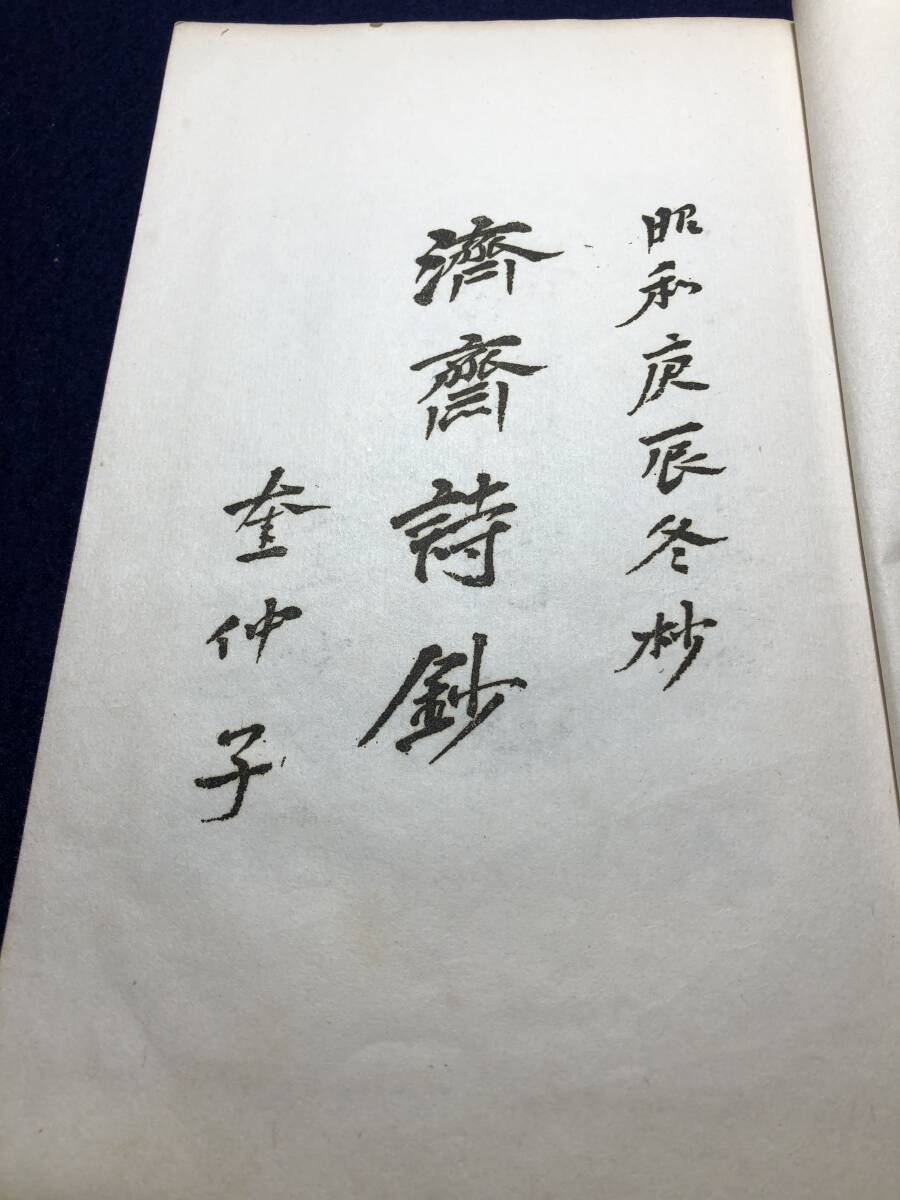 昭和庚辰冬杪
濟齋詩鈔
奎仲子